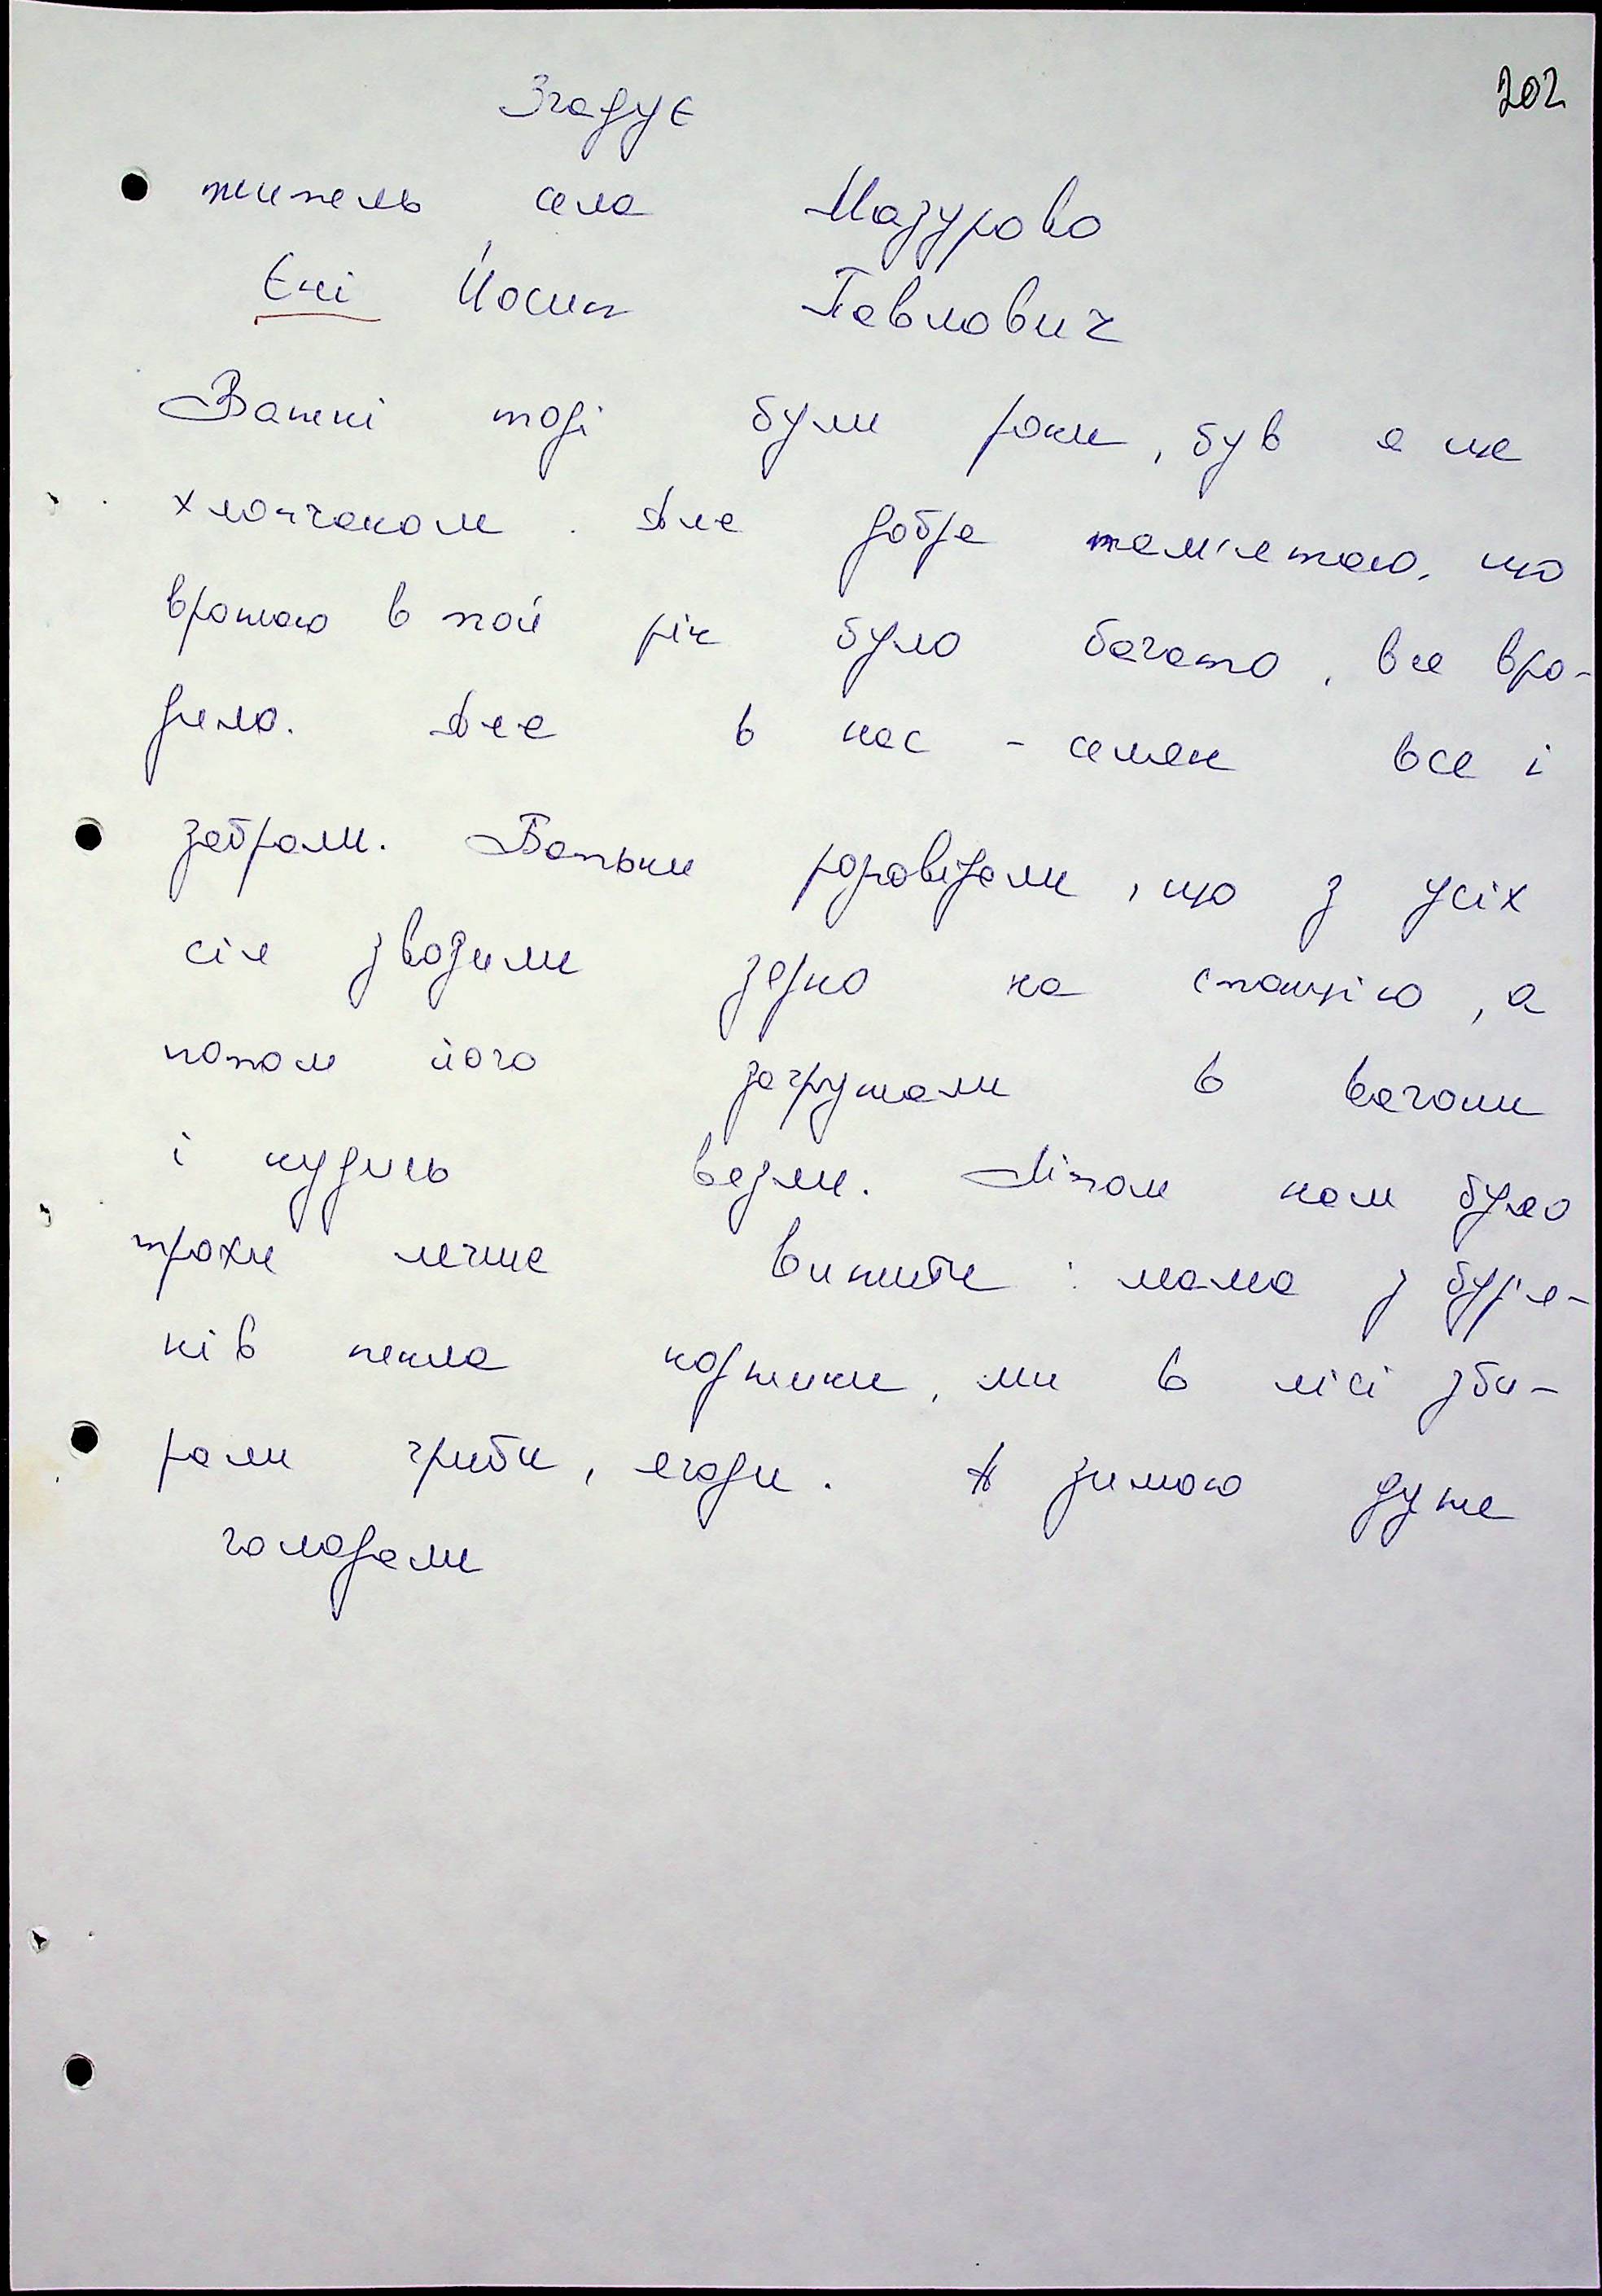 202
Згадує
житель села Мазурово
Єні Йосип Павлович
Важкі тоді були роки, був я ще
хлопчаком. Але добре пам'ятаю, що
врожаю в той рік було багато, все вро-
дило. Але в нас - селян все і
забрали. Батьки розповідали, що з усіх
сіл звозили зерно на станцію, а
потом його загружали в вагони
і кудись везли. Літом нам було
трохи легше вижити: мама з бур'я-
нів пекла коржики, ми в лісі зби-
рали гриби, ягоди. А зимою дуже
голодали